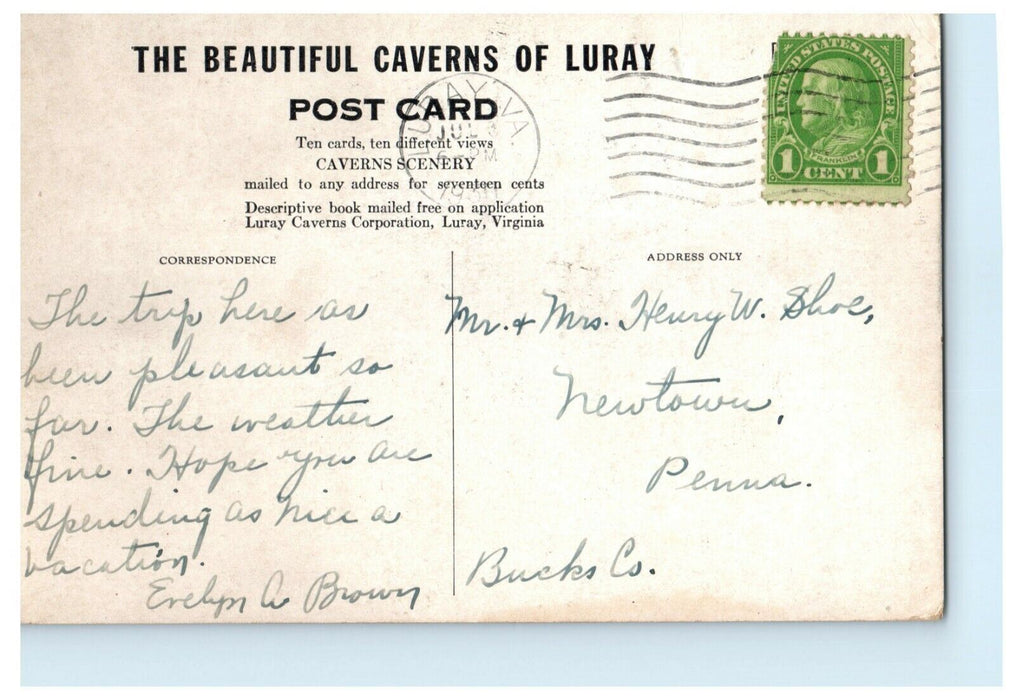 THE BEAUTIFUL CAVERNS OF LURAY
POST CARD
Ten cards, ten different views
CAVERNS SCENERY
mailed to any address for seventeen cents
Descriptive book mailed free on application
Luray Caverns Corporation, Luray, Virginia
LURAY VA.
JUL
PM
UNITED STATES POSTAGE
FRANKLIN
1 CENT 1
CORRESPONDENCE
The trip here as
been pleasant so
far. The weather
fine. Hope you are
spending as nice a
vacation.
Evelyn A Brown
ADDRESS ONLY
Mr. & Mrs. Henry W. Shoe,
Newtown,
Penna.
Bucks Co.